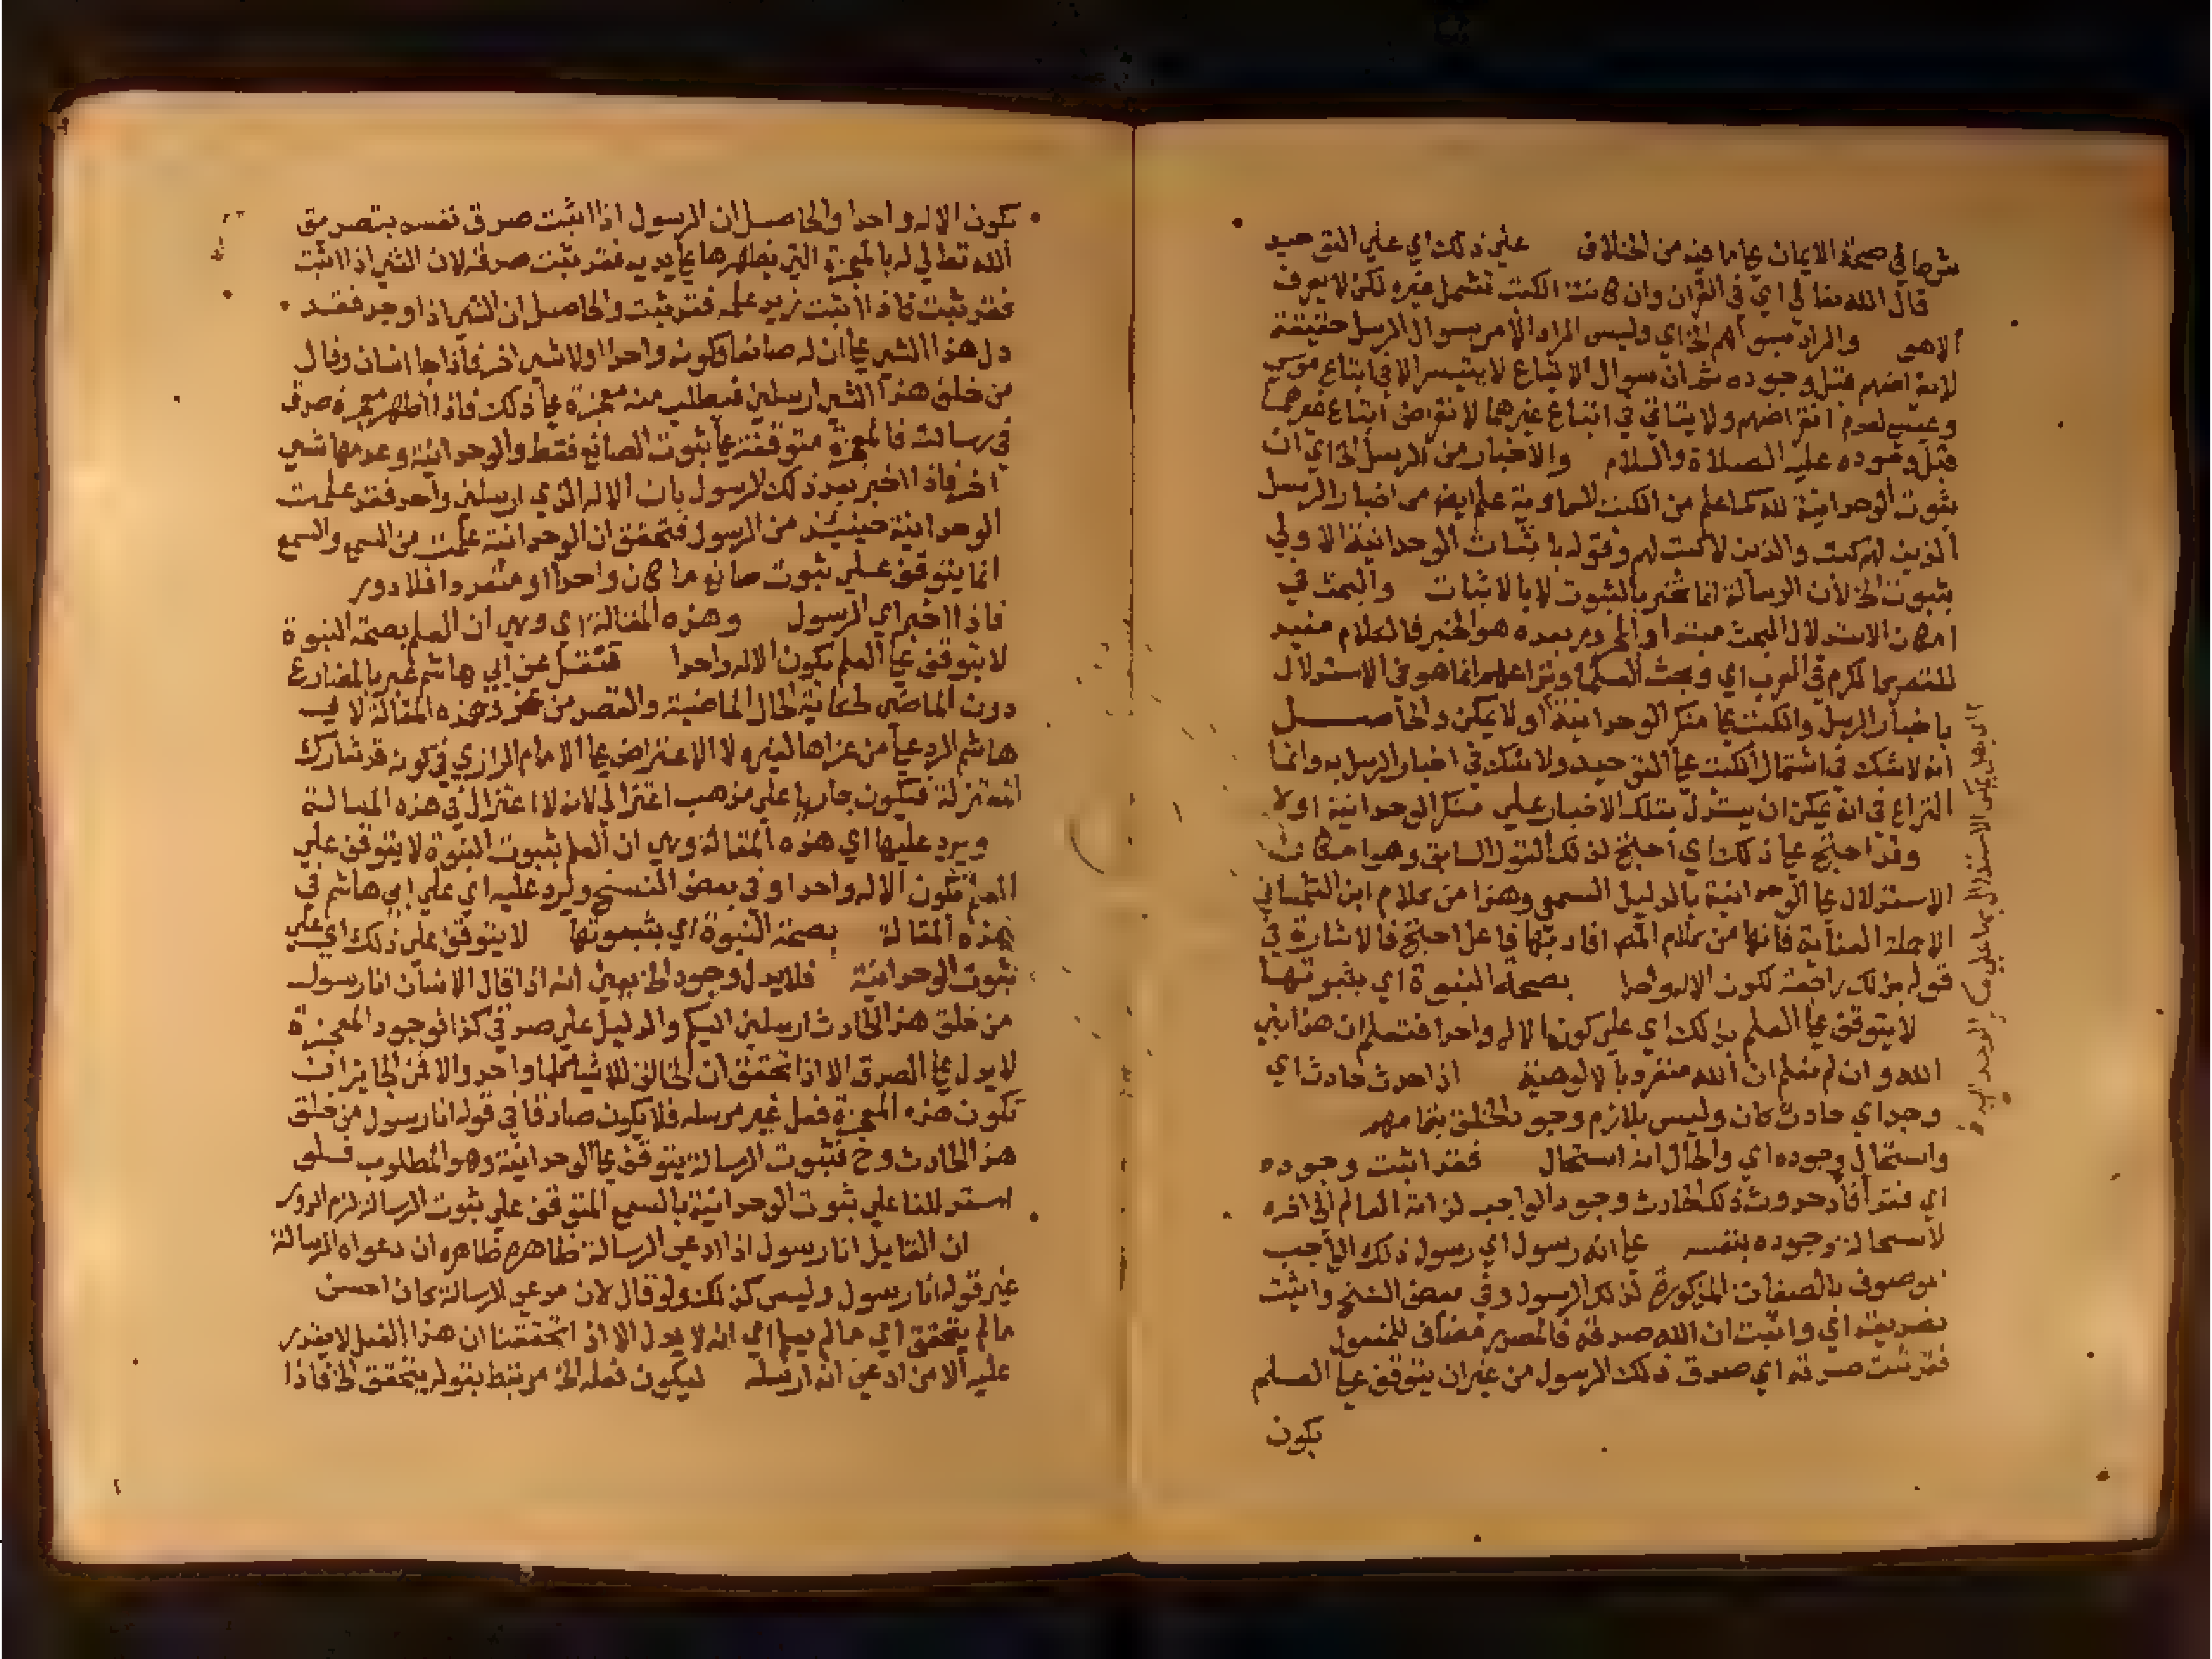 شرطا في صحة الايمان علي ما فيه من الخلاف علي ذلك اي علي التوحيد
قال الله تعالي اي في القران وان كانت الكتب تشمل غيره لكن لا يعرف
الا هو والمراد بسؤالهم الخ اي وليس المراد الامر بسوال الرسل حقيقة
لانقراضهم قبل وجوده ثم ان سوال الاتباع لا يتيسر الا في اتباع موسي
وعيسي لعدم انقراضهم ولا يتاتي في اتباع غيرهما لانقراض اتباع غيرهما
قبل وجوده عليه الصلاة والسلام والاخبار من الرسل الخ اي ان
ثبوت الوحدانية لله كما علم من الكتب السماوية علم ايضا من اخبار الرسل
الذين لهم كتب والذين لا كتب لهم وقوله باثبات الوحدانية الاولي
بثبوت الخ لان الرسالة انما تخبر بالثبوت لا بالاثبات والبحث في
امكان الاستدلال البحث مبتدا والمجرور بعده هو الخبر فالكلام مفيد
للحصر كما الكرم في العرب اي وبحث العلما ونزاعهم انما هو في الاستدلال
باخبار الرسل والكتب علي منكر الوحدانية او لا يمكن والحاصل
انه لا شك في اشتمال الكتب علي التوحيد ولا شك في اخبار الرسل به وانما
النزاع في انه يمكن ان يستدل بتلك الاخبار علي منكر الوحدانية او لا
وقد احتج علي ذلك اي احتج لذلك القول السابق وهو امكان
الاستدلال علي الوحدانية بالدليل السمعي وهذا من كلام ابن التلمساني
الاجلة العناية فانها من كلام المص افاد بها فاعل احتج فالاشارة في
قوله بذلك راجعة لكون الاله واحدا بصحة النبوة اي بثبوتها
لا يتوقف علي العلم بذلك اي علي كون الاله واحدا فنعلم ان هذا نبي
الله وان لم نعلم ان الله منفرد بالالوهية اذا حدث حادث اي
وجد اي حادث كان وليس بلازم وجود الخلق بتمامهم
واستحال وجوده اي والحال انه استحال فقد اثبت وجوده
اي فقد افاد حدوث ذلك الحادث وجود الواجب لذاته العالم الي اخره
لاستحالة وجوده بنفسه علي انه رسول اي رسول ذلك الواجب
الموصوف بالصفات المذكورة لذلك الرسول وفي بعض النسخ واثبت
تصديقه اي واثبت ان الله صدقه فالمصدر مضاف للمفعول
فقد ثبت صدقه اي صدق ذلك الرسول من غير ان يتوقف علي العلم
بكون
بكون الاله واحدا والحاصل ان الرسول اذا اثبت صدق نفسه بتصديق
الله تعالي له بالمعجزة التي يظهرها علي يديه فقد ثبت صدقه لان الشي اذا اثبت
فقد ثبت فاذا اثبت زيد علمه فقد ثبت والحاصل ان الشي اذا وجد فقد
دل هذا الشي علي ان له صانعا وكونه واحدا او لا شي اخر فاذا جا انسان وقال
من خلق هذا الشي ارسلني فيطلب منه معجزة علي ذلك فاذا اظهر معجزة صدق
في رسالته فالمعجزة متوقفة علي ثبوت الصانع فقط والوحدانية وعدمها شي
اخر فاذا اخبر بعد ذلك الرسول بان الاله الذي ارسلني واحد فقد علمت
الوحدانية حينيئذ من الرسول فتحقق ان الوحدانية علمت من السمع والسمع
انما يتوقف علي ثبوت صانع ما كان واحدا او متعددا فلا دور
فاذا اخبر اي الرسول وهذه المقالة اي وهي ان العلم بصحة النبوة
لا يتوقف علي العلم بكون الاله واحدا فتنقل عن ابي هاشم عبر بالمضارع
دون الماضي لحكاية الحال الماضية والقصد من عزو هذه المقالة لابي
هاشم الرد علي من عزاها لغيره لا الاعتراض علي الامام الرازي في كونه قد شارك
المعتزلة فيكون جاريا علي مذهب اعتزالي لانه لا اعتزال في هذه المسالة
ويرد عليها اي هذه المقالة وهي ان العلم بثبوت النبوة لا يتوقف علي
العلم بكون الاله واحدا وفي بعض النسخ ويرد عليه اي علي ابي هاشم في
هذه المقالة بصحة النبوة اي بثبوتها لا يتوقف علي ذلك اي علي
ثبوت الوحدانية فلا يدل وجود الخ يعني انه اذا قال الانسان انا رسول
من خلق هذا الحادث ارسلني اليكم والدليل علي صدقي كذا فوجود المعجزة
لا يدل علي الصدق الا اذا تحقق ان الخالق للاشيا كلها واحد والا فمن الجايز ان
تكون هذه المعجزة فعل غير مرسله فلا يكون صادقا في قوله انا رسول من خلق
هذا الحادث وح فثبوت الرسالة يتوقف علي الوحدانية وهو المطلوب فلو
استدللنا علي ثبوت الوحدانية بالسمع المتوقف علي ثبوت الرسالة لزم الدور
ان القايل انا رسول اذا ادعي الرسالة ظاهره ظاهره ان دعواه الرسالة
غير قوله انا رسول وليس كذلك ولو قال لان مدعي الرسالة كان احسن
ما لم يتحقق اي ما لم يعلم اي انه لا يدل الا اذا تحققنا ان هذا الفعل لا يقدر
عليه الا من ادعي انه ارسله ليكون فعله الخ مرتبط بقوله يتحقق الخ فاذا